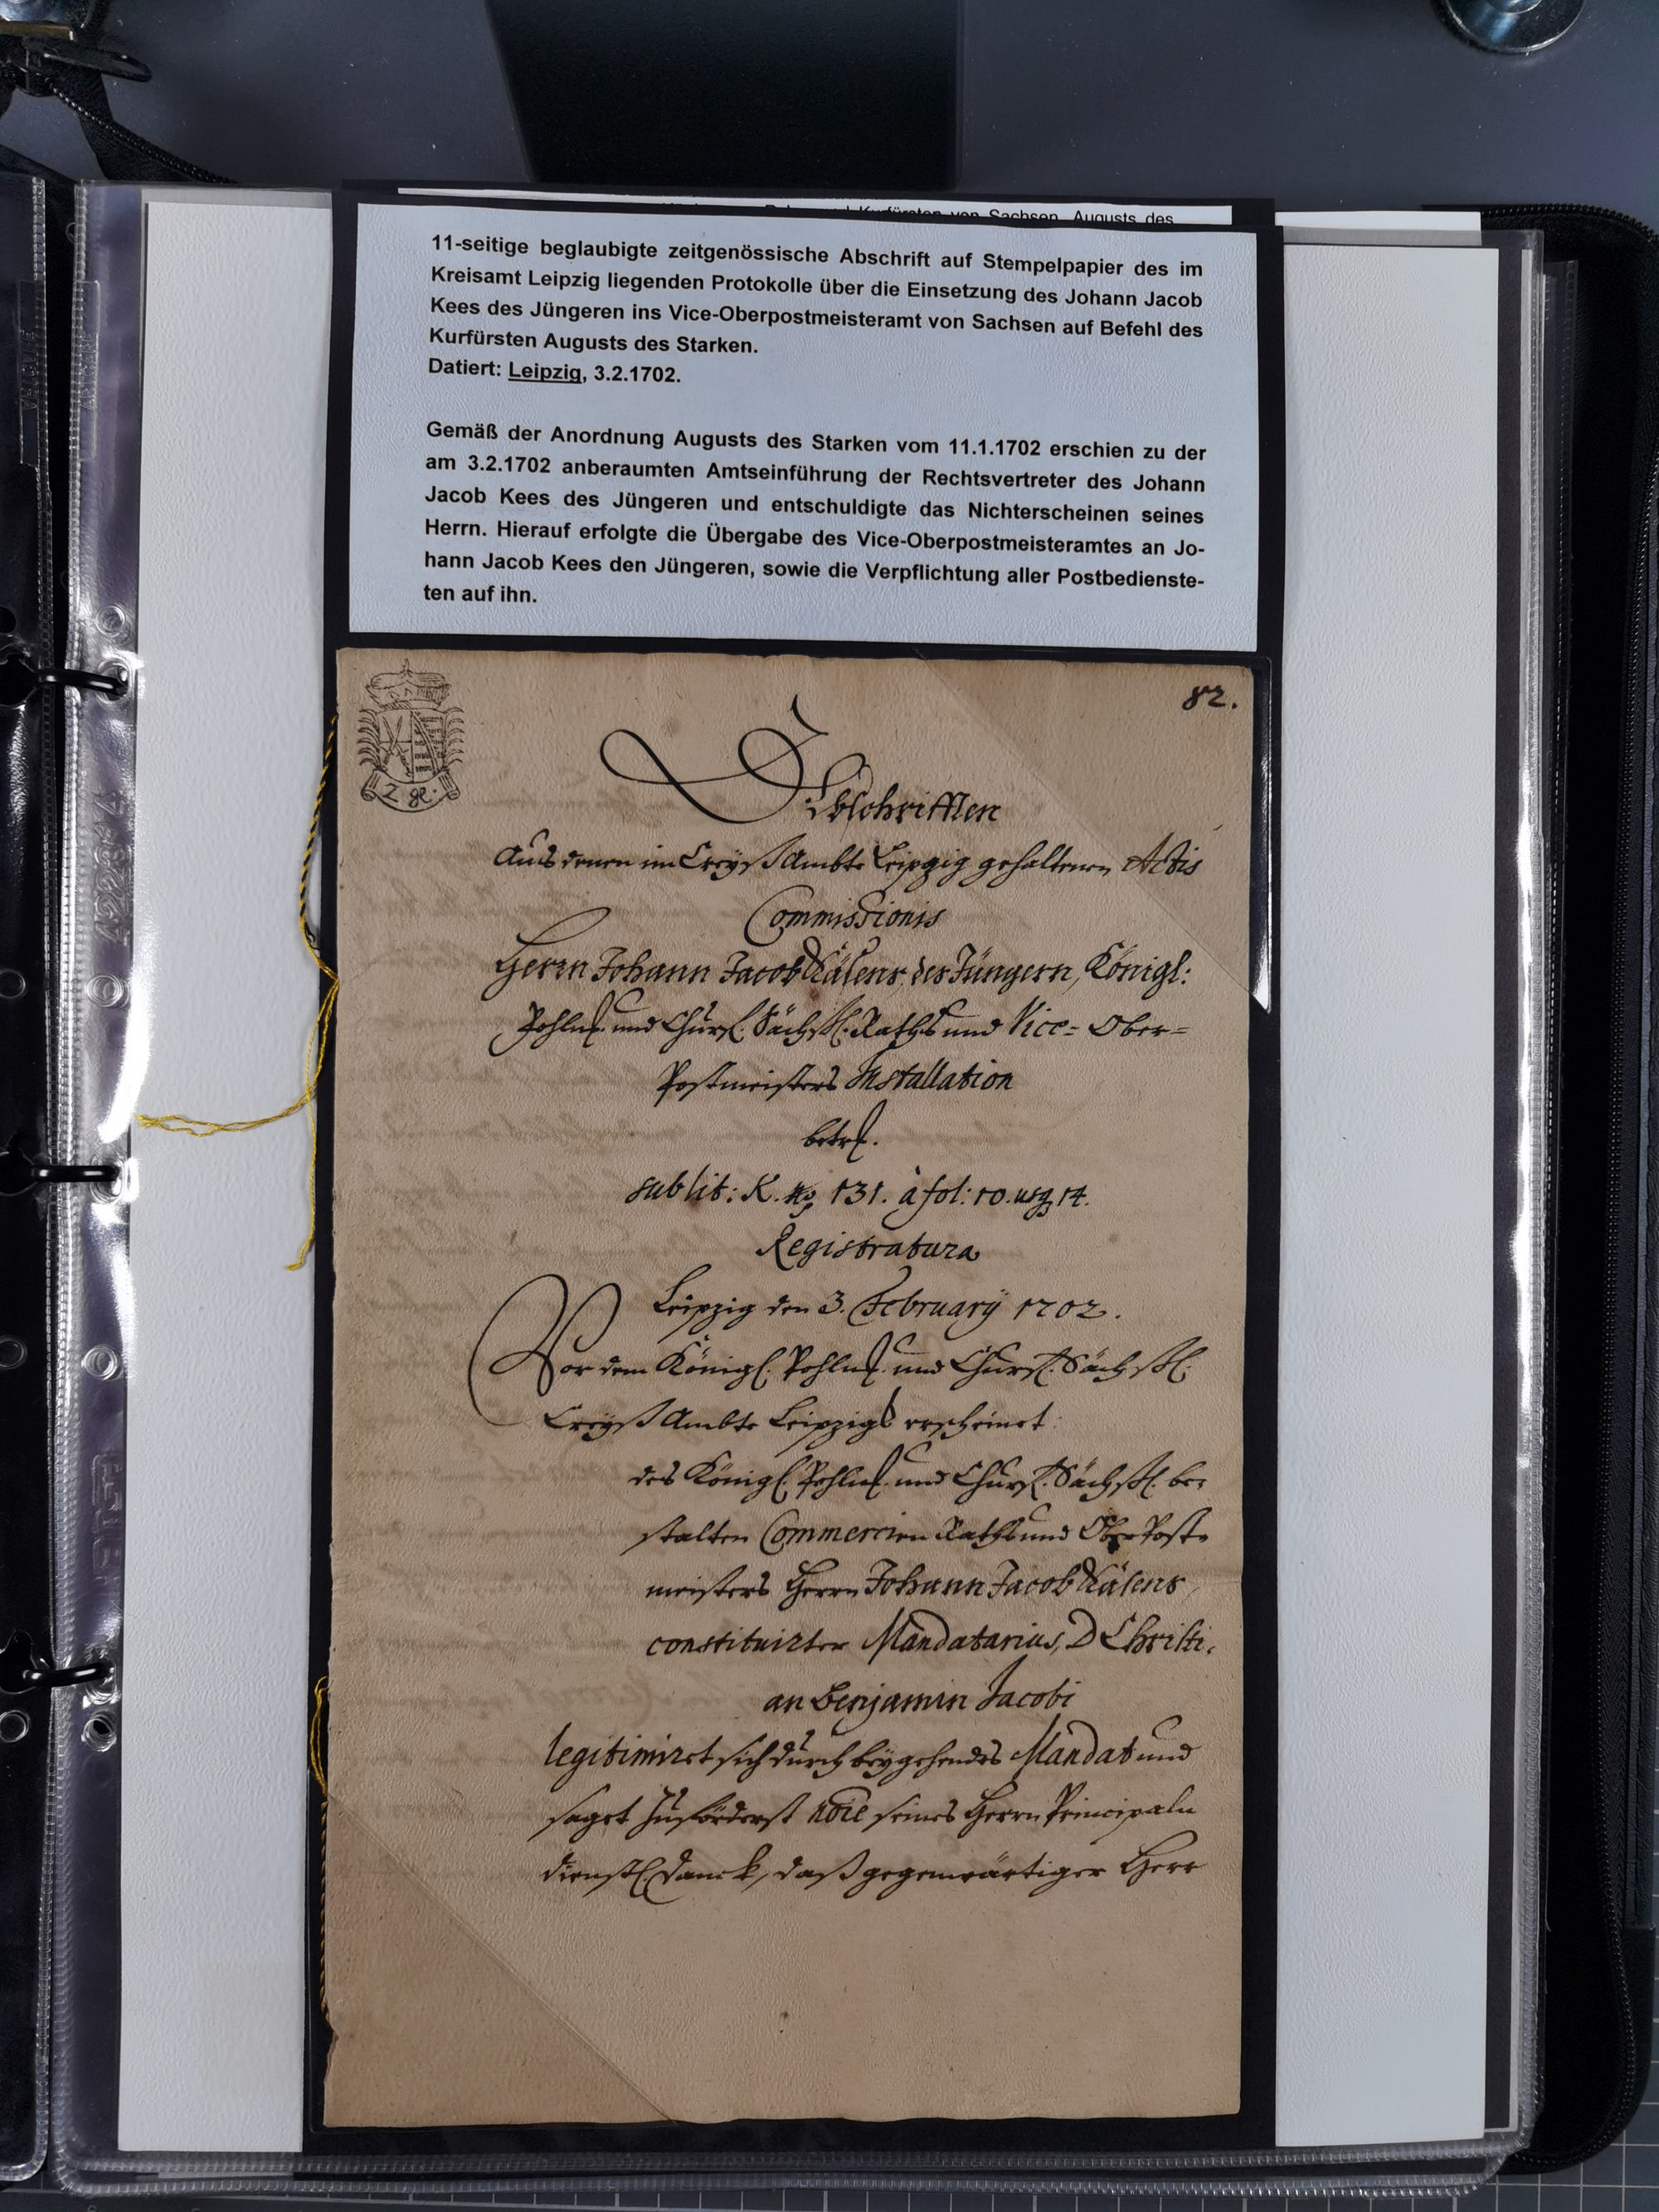 Kurfürsten von Sachsen, Augusts des
11-seitige beglaubigte zeitgenössische Abschrift auf Stempelpapier des im
Kreisamt Leipzig liegenden Protokolle über die Einsetzung des Johann Jacob
Kees des Jüngeren ins Vice-Oberpostmeisteramt von Sachsen auf Befehl des
Kurfürsten Augusts des Starken.
Datiert: Leipzig, 3.2.1702.
Gemäß der Anordnung Augusts des Starken vom 11.1.1702 erschien zu der
am 3.2.1702 anberaumten Amtseinführung der Rechtsvertreter des Johann
Jacob Kees des Jüngeren und entschuldigte das Nichterscheinen seines
Herrn. Hierauf erfolgte die Übergabe des Vice-Oberpostmeisteramtes an Jo-
hann Jacob Kees den Jüngeren, sowie die Verpflichtung aller Postbedienste-
ten auf ihn.
82.
2 gl.
Abschrifften
Aus denen im Creyß Ambte Leipzig gehaltenen Actis
Commissionis
Herrn Johann Jacob Käsens, des Jüngern, Königl:
Pohln. und Churf. Sächßl. Raths und Vice-Ober-
Postmeisters Installation
betr.
sub lit: K. No 131. à fol: 10. usq 14.
Registratura
Leipzig den 3. February 1702.
Vor dem Königl. Pohln. und Churf. Sächßl.
Creyß Ambte Leipzigk erscheinet
des Königl. Pohln. und Churf. Sächßl. be-
stalten Commercien Raths und Ober Post-
meisters Herrn Johann Jacob Käsens,
constituirter Mandatarius, D Christi-
an Benjamin Jacobi
legitimiret sich durch beygehendes Mandat und
saget zuförderst noie seines Herrn Principaln
dienstl. danck, daß gegenwärtiger Herr